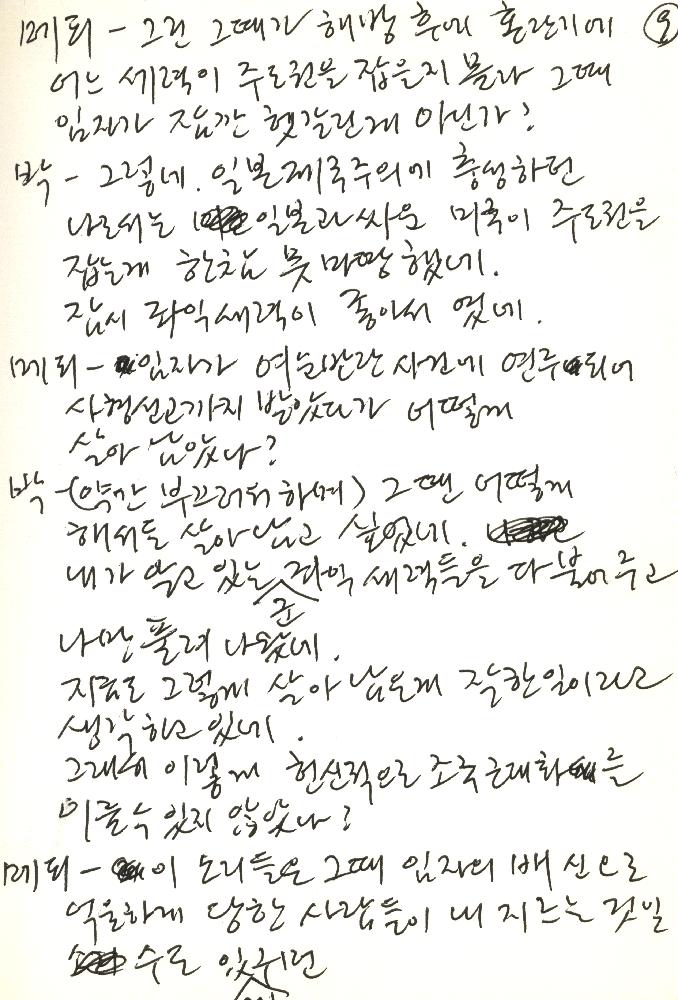 메퇴 - 그런 그때가 해방 후에 혼란기에
어느 세력이 주도권을 잡을지 몰라 그때
임자가 잠깐 헷갈린게 아닌가?
박 - 그렇네. 일본제국주의에 충성하던
나로서는 일본과 싸운 미국이 주도권을
잡는게 한참 못마땅했네.
잠시 좌익세력이 좋아서 였네.
메퇴 - 임자가 여순반란 사건에 연루되어
사형선고까지 받았다가 어떻게
살아 남았나?
박 - (약간 부끄러워 하며) 그땐 어떻게
해서든 살아남고 싶었네.
내가 알고 있는 군 좌익 세력들을 다 불어 주고
나만 풀려 나왔네.
지금도 그렇게 살아 남은게 잘한일이라고
생각하고 있네.
그래서 이렇게 헌신적으로 조국근대화를
이룰 수 있지 않았나?
메퇴 - 이 소리들은 그때 임자의 배신으로
억울하게 당한 사람들이 내지르는 것일
수도 있